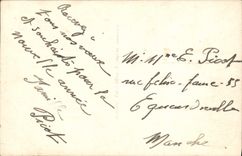 Recevez
tous nos vœux
et souhaits pour la
nouvelle année
Famille
Picot
M. Mme E. Picot
rue felix-faure-55
Equeurdreville
Manche